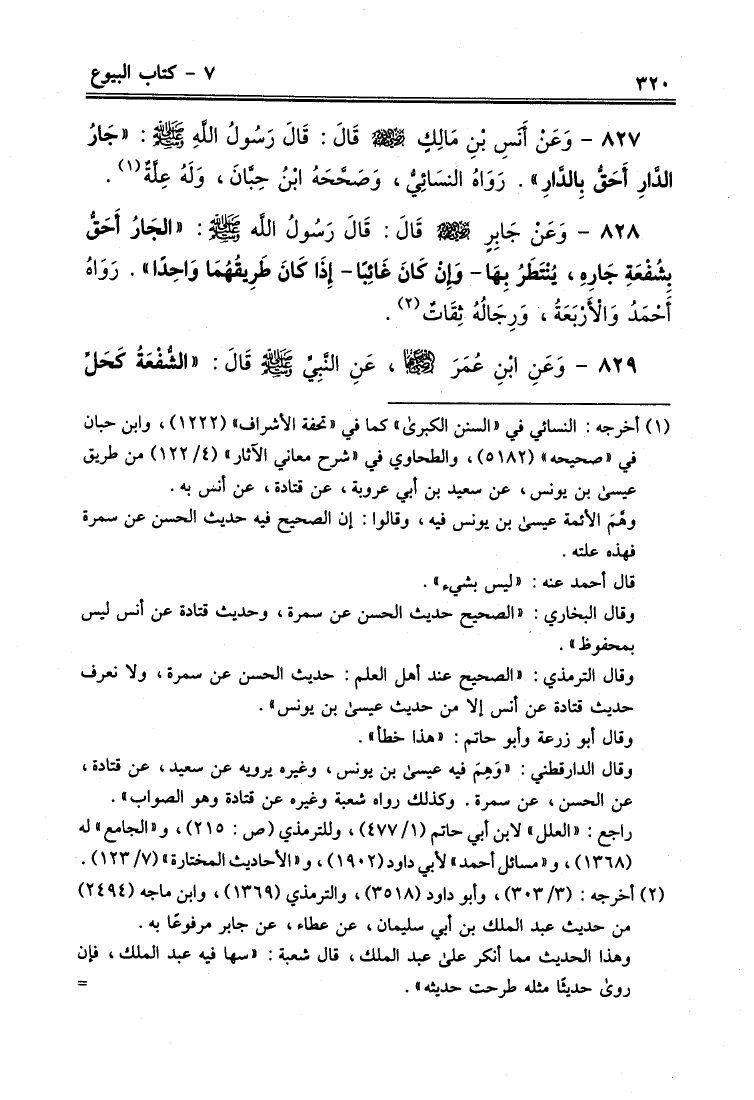 ٣٢٠
٧ - كتاب البيوع
٨٢٧ - وَعَنْ أَنَسِ بْنِ مَالِكٍ ﵁ قَالَ : قَالَ رَسُولُ اللَّهِ ﷺ : «جَارُ
الدَّارِ أَحَقُّ بِالدَّارِ» . رَوَاهُ النسَائِيُّ ، وَصَحَّحَهُ ابْنُ حِبَّانَ ، وَلَهُ عِلَّةٌ(١) .
٨٢٨ - وَعَنْ جَابِرٍ ﵁ قَالَ : قَالَ رَسُولُ الله ﷺ : «الجَارُ أَحَقُّ
بِشُفْعَةِ جَارِهِ ، يُنْتَظَرُ بِهَا - وَإِنْ كَانَ غَائِبًا - إِذَا كَانَ طَرِيقُهُمَا وَاحِدًا» . رَوَاهُ
أَحْمَدُ وَالْأَرْبَعَةُ ، وَرِجَالُهُ ثِقَاتٌ(٢) .
٨٢٩ - وَعَنِ ابْنِ عُمَرَ ﵄ ، عَنِ النَّبِيِّ ﷺ قَالَ : «الشُّفْعَةُ كَحَلِّ
(١) أخرجه : النسائي في «السنن الكبرىٰ» كما في «تحفة الأشراف» (١٢٢٢) ، وابن حبان
في «صحيحه» (٥١٨٢) ، والطحاوي في «شرح معاني الآثار» (٤/ ١٢٢) من طريق
عيسىٰ بن يونس ، عن سعيد بن أبي عروبة ، عن قتادة ، عن أنس به .
وهَّمَ الأئمة عيسىٰ بن يونس فيه ، وقالوا : إن الصحيح فيه حديث الحسن عن سمرة
فهذه علته .
قال أحمد عنه : «ليس بشيء» .
وقال البخاري : «الصحيح حديث الحسن عن سمرة ، وحديث قتادة عن أنس ليس
بمحفوظ» .
وقال الترمذي : «الصحيح عند أهل العلم : حديث الحسن عن سمرة ، ولا نعرف
حديث قتادة عن أنس إلا من حديث عيسىٰ بن يونس» .
وقال أبو زرعة وأبو حاتم : «هذا خطأ» .
وقال الدارقطني : «وَهِمَ فيه عيسىٰ بن يونس ، وغيره يرويه عن سعيد ، عن قتادة ،
عن الحسن ، عن سمرة . وكذلك رواه شعبة وغيره عن قتادة وهو الصواب» .
راجع : «العلل» لابن أبي حاتم (١/ ٤٧٧) ، وللترمذي (ص : ٢١٥) ، و«الجامع» له
(١٣٦٨) ، و«مسائل أحمد» لأبي داود (١٩٠٢) ، و«الأحاديث المختارة» (٧/ ١٢٣) .
(٢) أخرجه : (٣/ ٣٠٣) ، وأبو داود (٣٥١٨) ، والترمذي (١٣٦٩) ، وابن ماجه (٢٤٩٤)
من حديث عبد الملك بن أبي سليمان ، عن عطاء ، عن جابر مرفوعًا به .
وهذا الحديث مما أنكر علىٰ عبد الملك ، قال شعبة : «سها فيه عبد الملك ، فإن
روىٰ حديثًا مثله طرحت حديثه» .
=